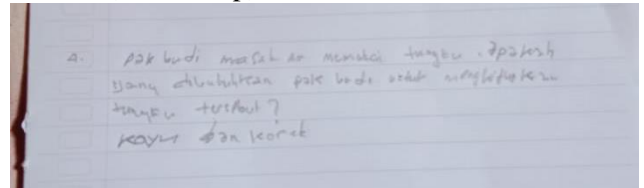 A. pak budi masak air memakai tungku. Apakah
yang dibutuhkan pak budi untuk menghidupkan
tungku tersebut?
kayu dan korek